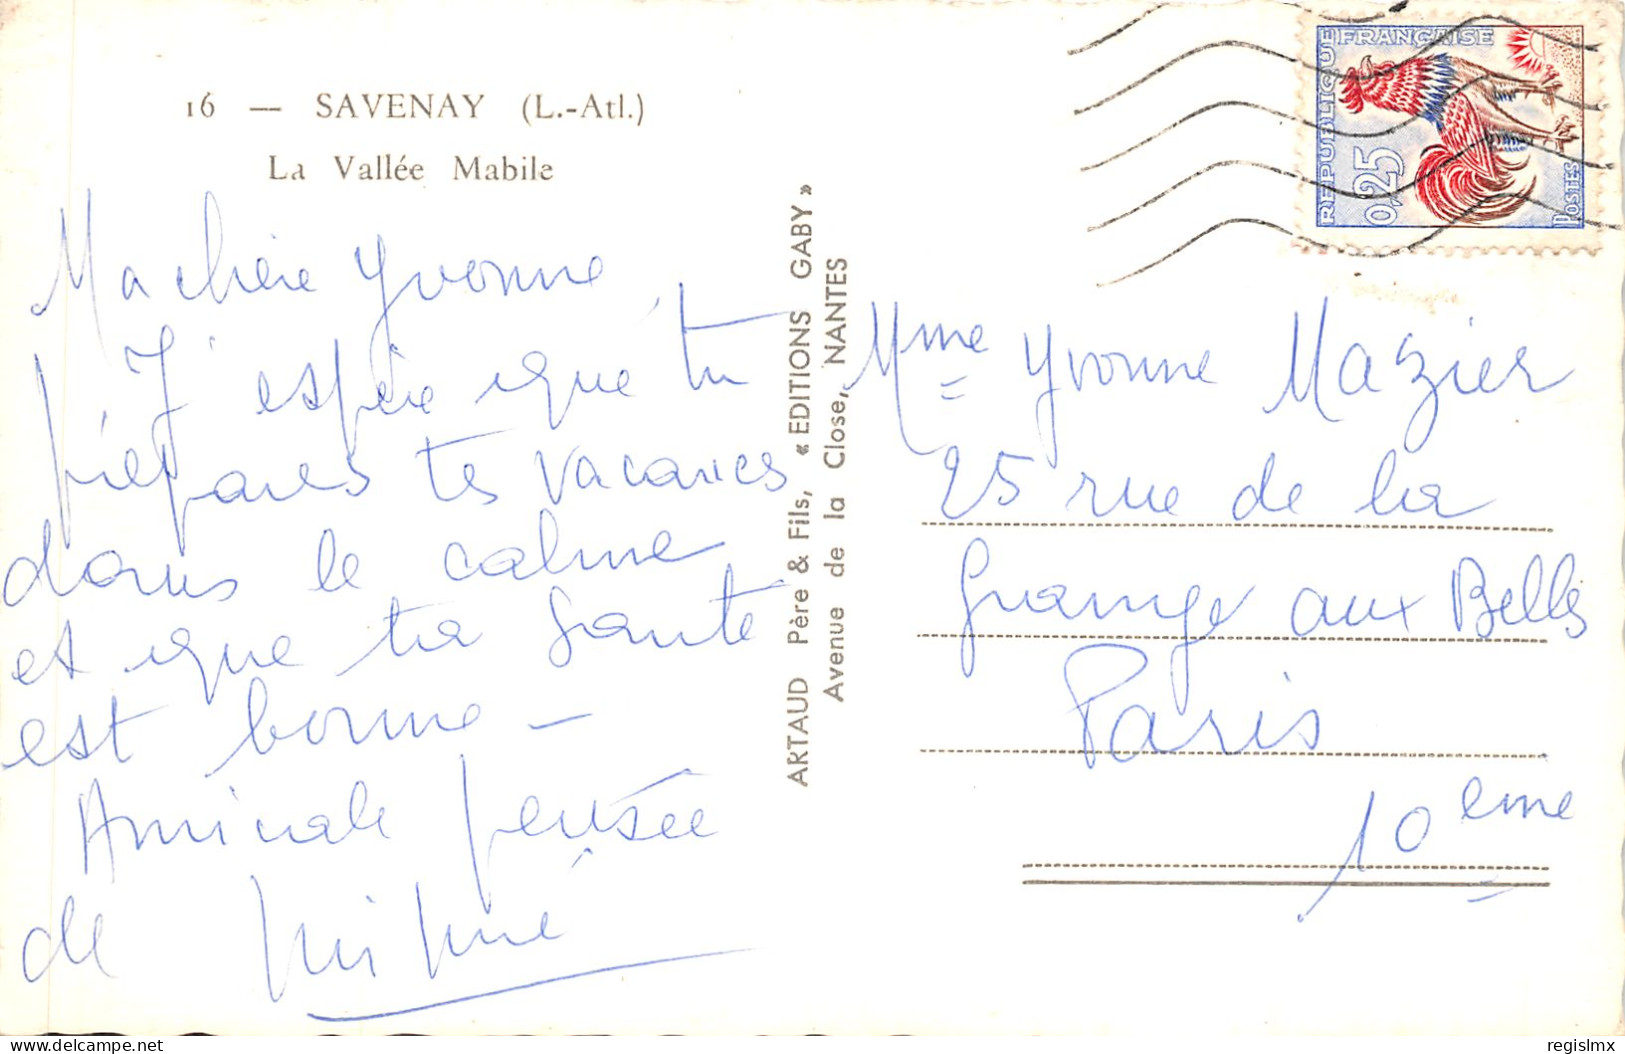 16 — SAVENAY (L.-Atl.)
La Vallée Mabile
Ma chère Yvonne,
J'espère que tu
prépares tes vacances
dans le calme
et que ta santé
est bonne –
Amicale pensée
de Mimé
ARTAUD Père & Fils, « EDITIONS GABY »
Avenue de la Close, NANTES
REPUBLIQUE FRANÇAISE
0,25
POSTES
Mme Yvonne Mazier
25 rue de la
Grange aux Belles
Paris
10 eme
delcampe.net
regislmx